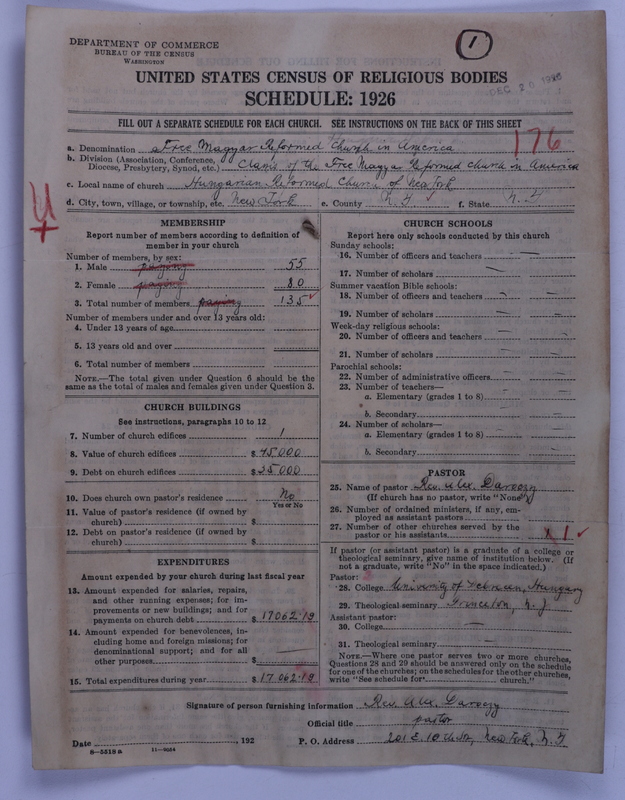 1
DEPARTMENT OF COMMERCE
BUREAU OF THE CENSUS
WASHINGTON
UNITED STATES CENSUS OF RELIGIOUS BODIES
DEC 20 1926
SCHEDULE: 1926
FILL OUT A SEPARATE SCHEDULE FOR EACH CHURCH. SEE INSTRUCTIONS ON THE BACK OF THIS SHEET
176
a. Denomination Free Magyar Reformed Church in America
b. Division (Association, Conference, Diocese, Presbytery, Synod, etc.) Classis of the Free Magyar Reformed Church in America
c. Local name of church Hungarian Reformed Church of New York
d. City, town, village, or township, etc. New York e. County N. Y. f. State N. Y.
MEMBERSHIP
Report number of members according to definition of
member in your church
Number of members, by sex:
1. Male 55
2. Female 80
3. Total number of members paying 135
Number of members under and over 13 years old:
4. Under 13 years of age
5. 13 years old and over
6. Total number of members
NOTE.—The total given under Question 6 should be the
same as the total of males and females given under Question 3.
CHURCH BUILDINGS
See instructions, paragraphs 10 to 12
7. Number of church edifices 1
8. Value of church edifices $ 45,000
9. Debt on church edifices $ 35,000
10. Does church own pastor's residence No
Yes or No
11. Value of pastor's residence (if owned by
church) $
12. Debt on pastor's residence (if owned by
church) $
EXPENDITURES
Amount expended by your church during last fiscal year
13. Amount expended for salaries, repairs,
and other running expenses; for im-
provements or new buildings; and for
payments on church debt $ 17062.19
14. Amount expended for benevolences, in-
cluding home and foreign missions; for
denominational support; and for all
other purposes $
15. Total expenditures during year $ 17.062.19
CHURCH SCHOOLS
Report here only schools conducted by this church
Sunday schools:
16. Number of officers and teachers —
17. Number of scholars —
Summer vacation Bible schools:
18. Number of officers and teachers —
19. Number of scholars —
Week-day religious schools:
20. Number of officers and teachers —
21. Number of scholars —
Parochial schools:
22. Number of administrative officers —
23. Number of teachers—
a. Elementary (grades 1 to 8) —
b. Secondary —
24. Number of scholars—
a. Elementary (grades 1 to 8) —
b. Secondary —
PASTOR
25. Name of pastor Rev. Alex. Daroczy
(If church has no pastor, write "None")
26. Number of ordained ministers, if any, em-
ployed as assistant pastors
27. Number of other churches served by the
pastor or his assistants 1
If pastor (or assistant pastor) is a graduate of a college or
theological seminary, give name of institution below. (If
not a graduate, write "No" in the space indicated.)
Pastor:
28. College University of Debrecen, Hungary
29. Theological seminary Princeton, N. J.
Assistant pastor:
30. College —
31. Theological seminary —
NOTE.—Where one pastor serves two or more churches,
Questions 28 and 29 should be answered only on the schedule
for one of the churches; on the schedules for the other churches,
write "See schedule for church."
Signature of person furnishing information Rev. Alex. Daroczy
Official title pastor
Date , 192 P. O. Address 201 E. 10 th Str., New York, N. Y.
8—5518 a 11—9034